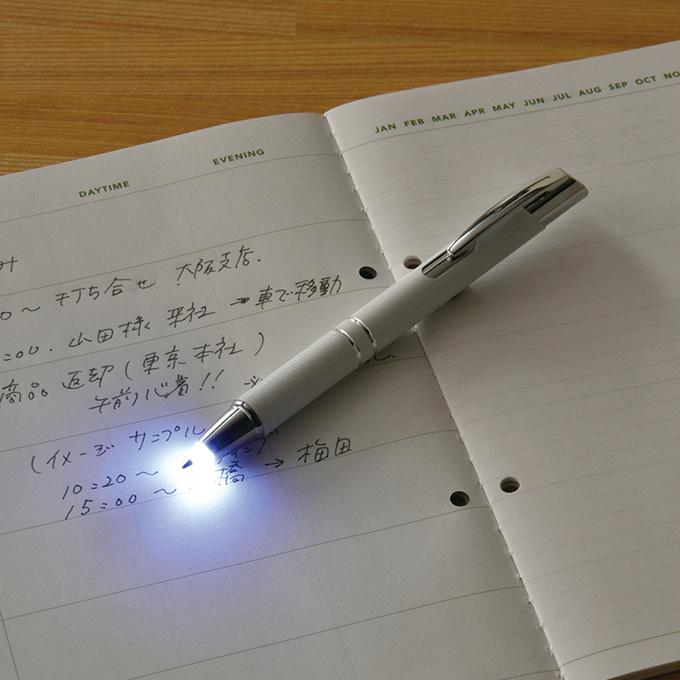 DAYTIME EVENING
JAN FEB MAR APR MAY JUN JUL AUG SEP OCT NO
み
0〜 打ち合せ 大阪支店.
:00. 山田様 来社 → 車で移動
商品 返却(東京本社)
午前必着!!
(イメージ サンプル
10:20〜
15:00〜 橋 → 梅田